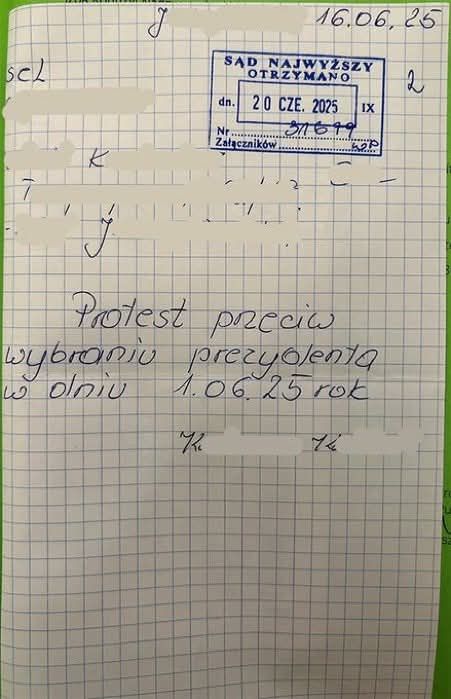 J 16.06.25
SĄD NAJWYŻSZY
OTRZYMANO
dn. 20 CZE. 2025 IX
Nr 31699
Załączników
2
seL
K
T
J
Protest przeciw
wybraniu prezydenta
w dniu 1.06.25 rok
K K